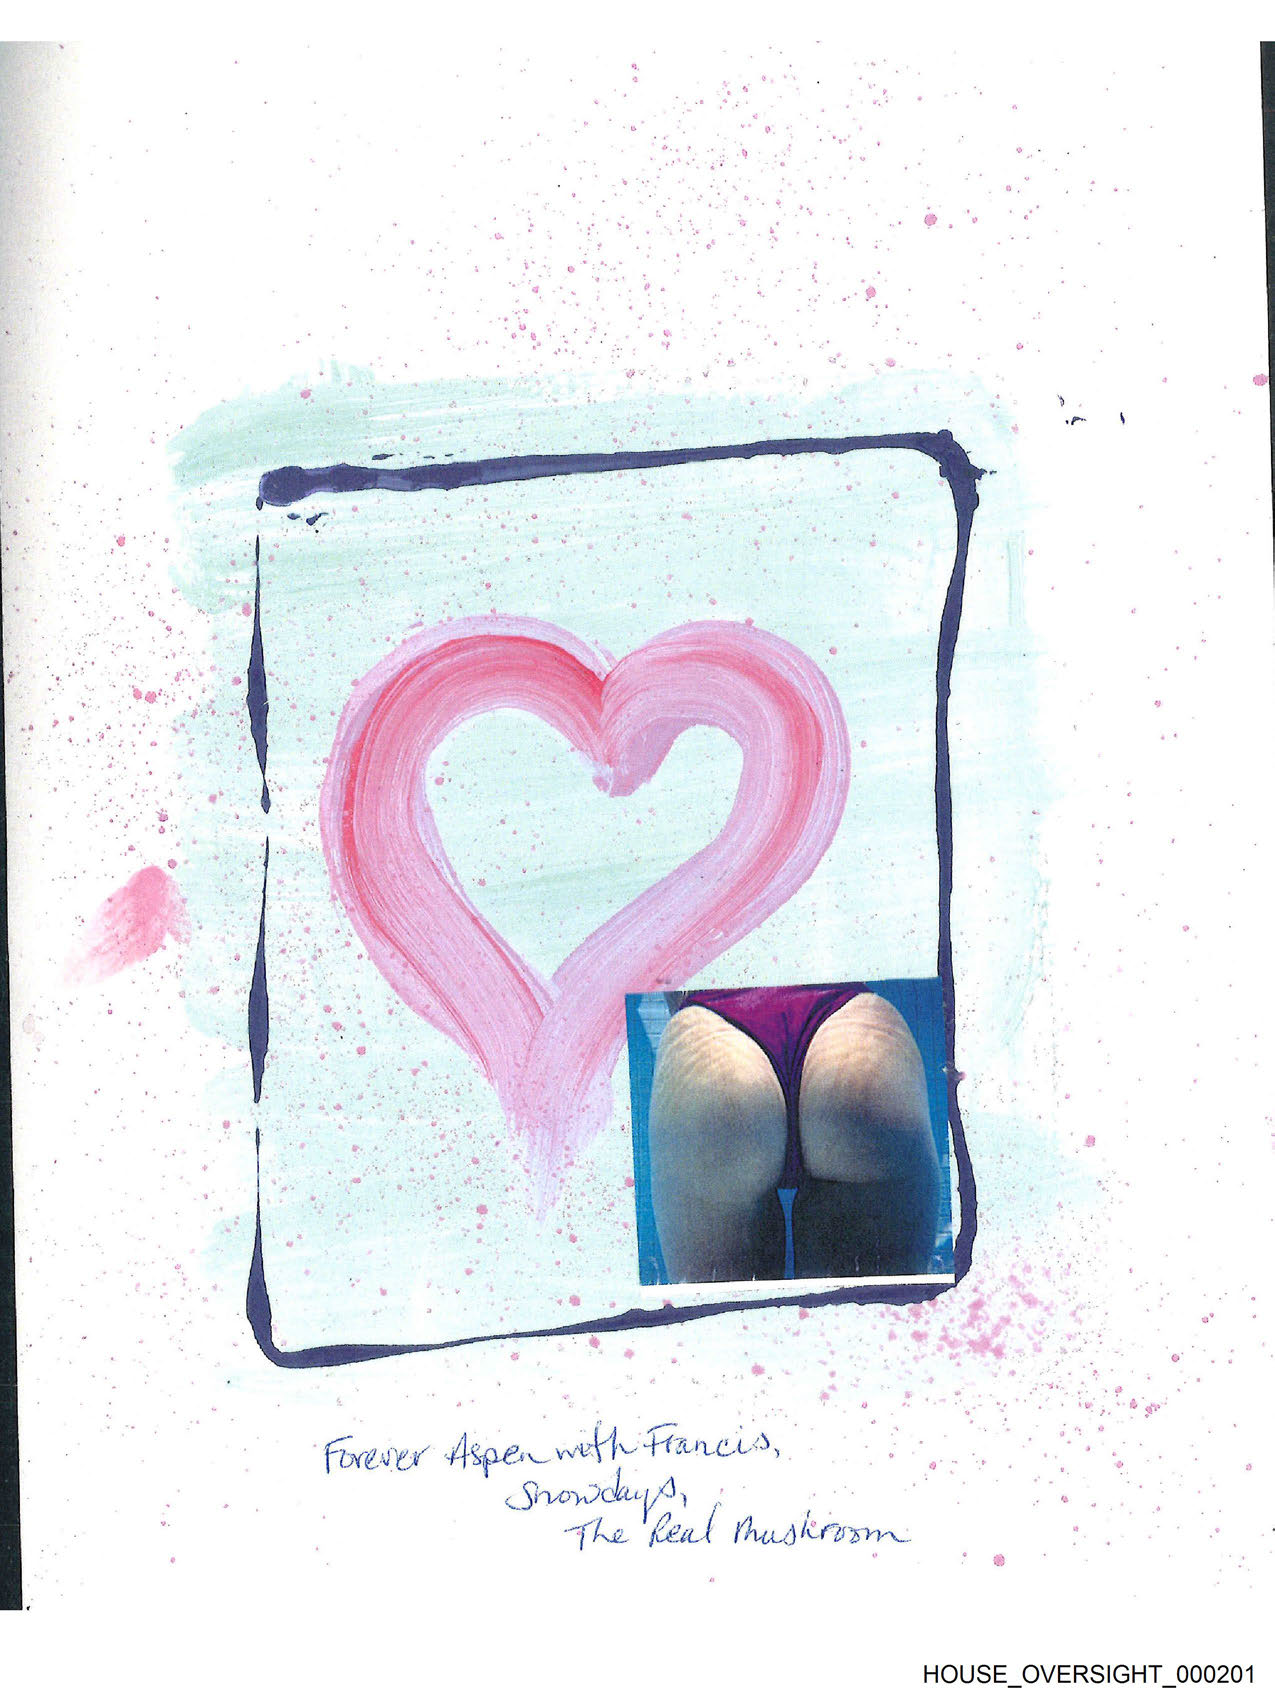 Forever Aspen with Francis,
Snowdays,
The Real Mushroom
HOUSE_OVERSIGHT_000201